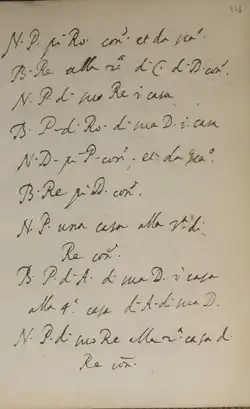 116
N. P. piu Ro. con.º et da sca.º
B. Re alla 2.ª di C. di D. con.º
N. P. di suo Re i casa
B. P. di Ro. di sua D. i casa
N. D. piu P. con.º et da sca.º
B. Re piu D. con.º
N. P. una casa alla 3.ª di
Re con.º
B. P. di A. di sua D. i casa
alla 4.ª casa di A. di sua D.
N. P. di suo Re alla 2.ª casa d.
Re con.